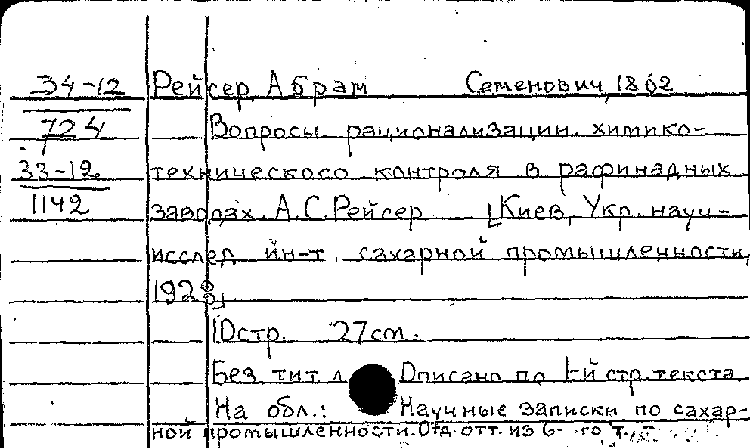 34-12 Рейсер, Абрам Семенович, 1862
724 Вопросы рационализации химико-
33-12 технического контроля в рафинадных
1142 заводах. А.С. Рейсер [Киев, Укр. науч-
исслед. ин-т сахарной промышленности,
1928]
10 стр. 27 см.
Без тит. л. Описано по 1-й стр. текста
На обл.: Научные записки по сахар-
ной промышленности. Отд. отт. из